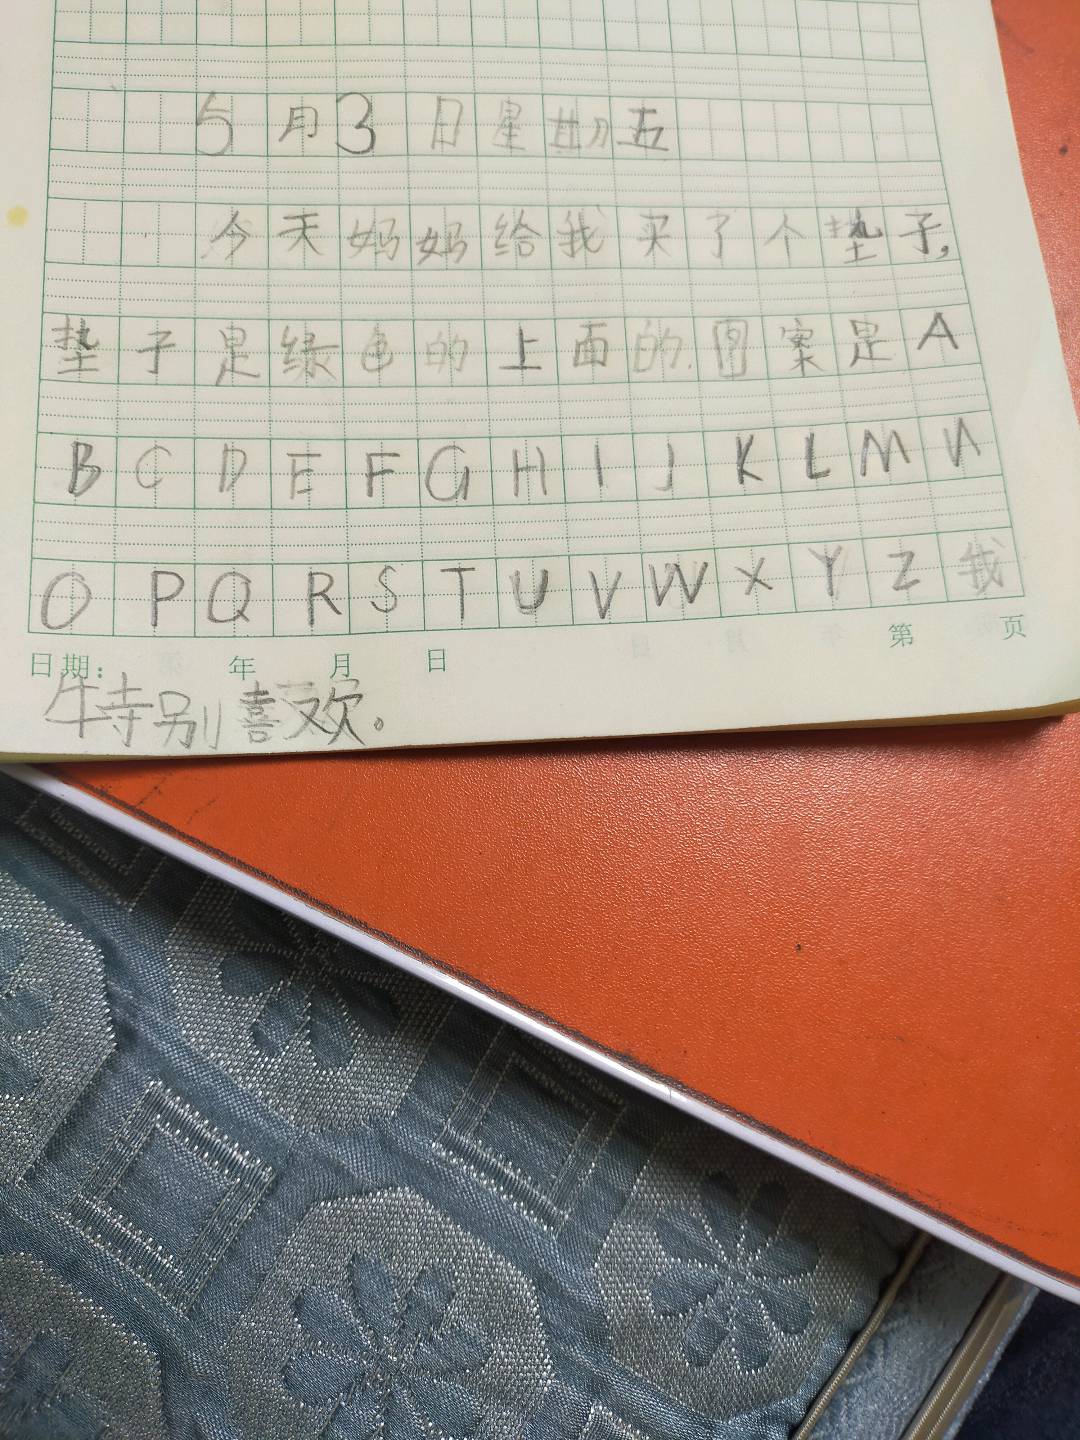 5月3日星期五
今天妈妈给我买了个垫子,
垫子是绿色的上面的.图案是A
BCDEFGHIJKLMN
OPQRSTUVWXYZ我
日期: 年 月 日 第 页
特别喜欢。